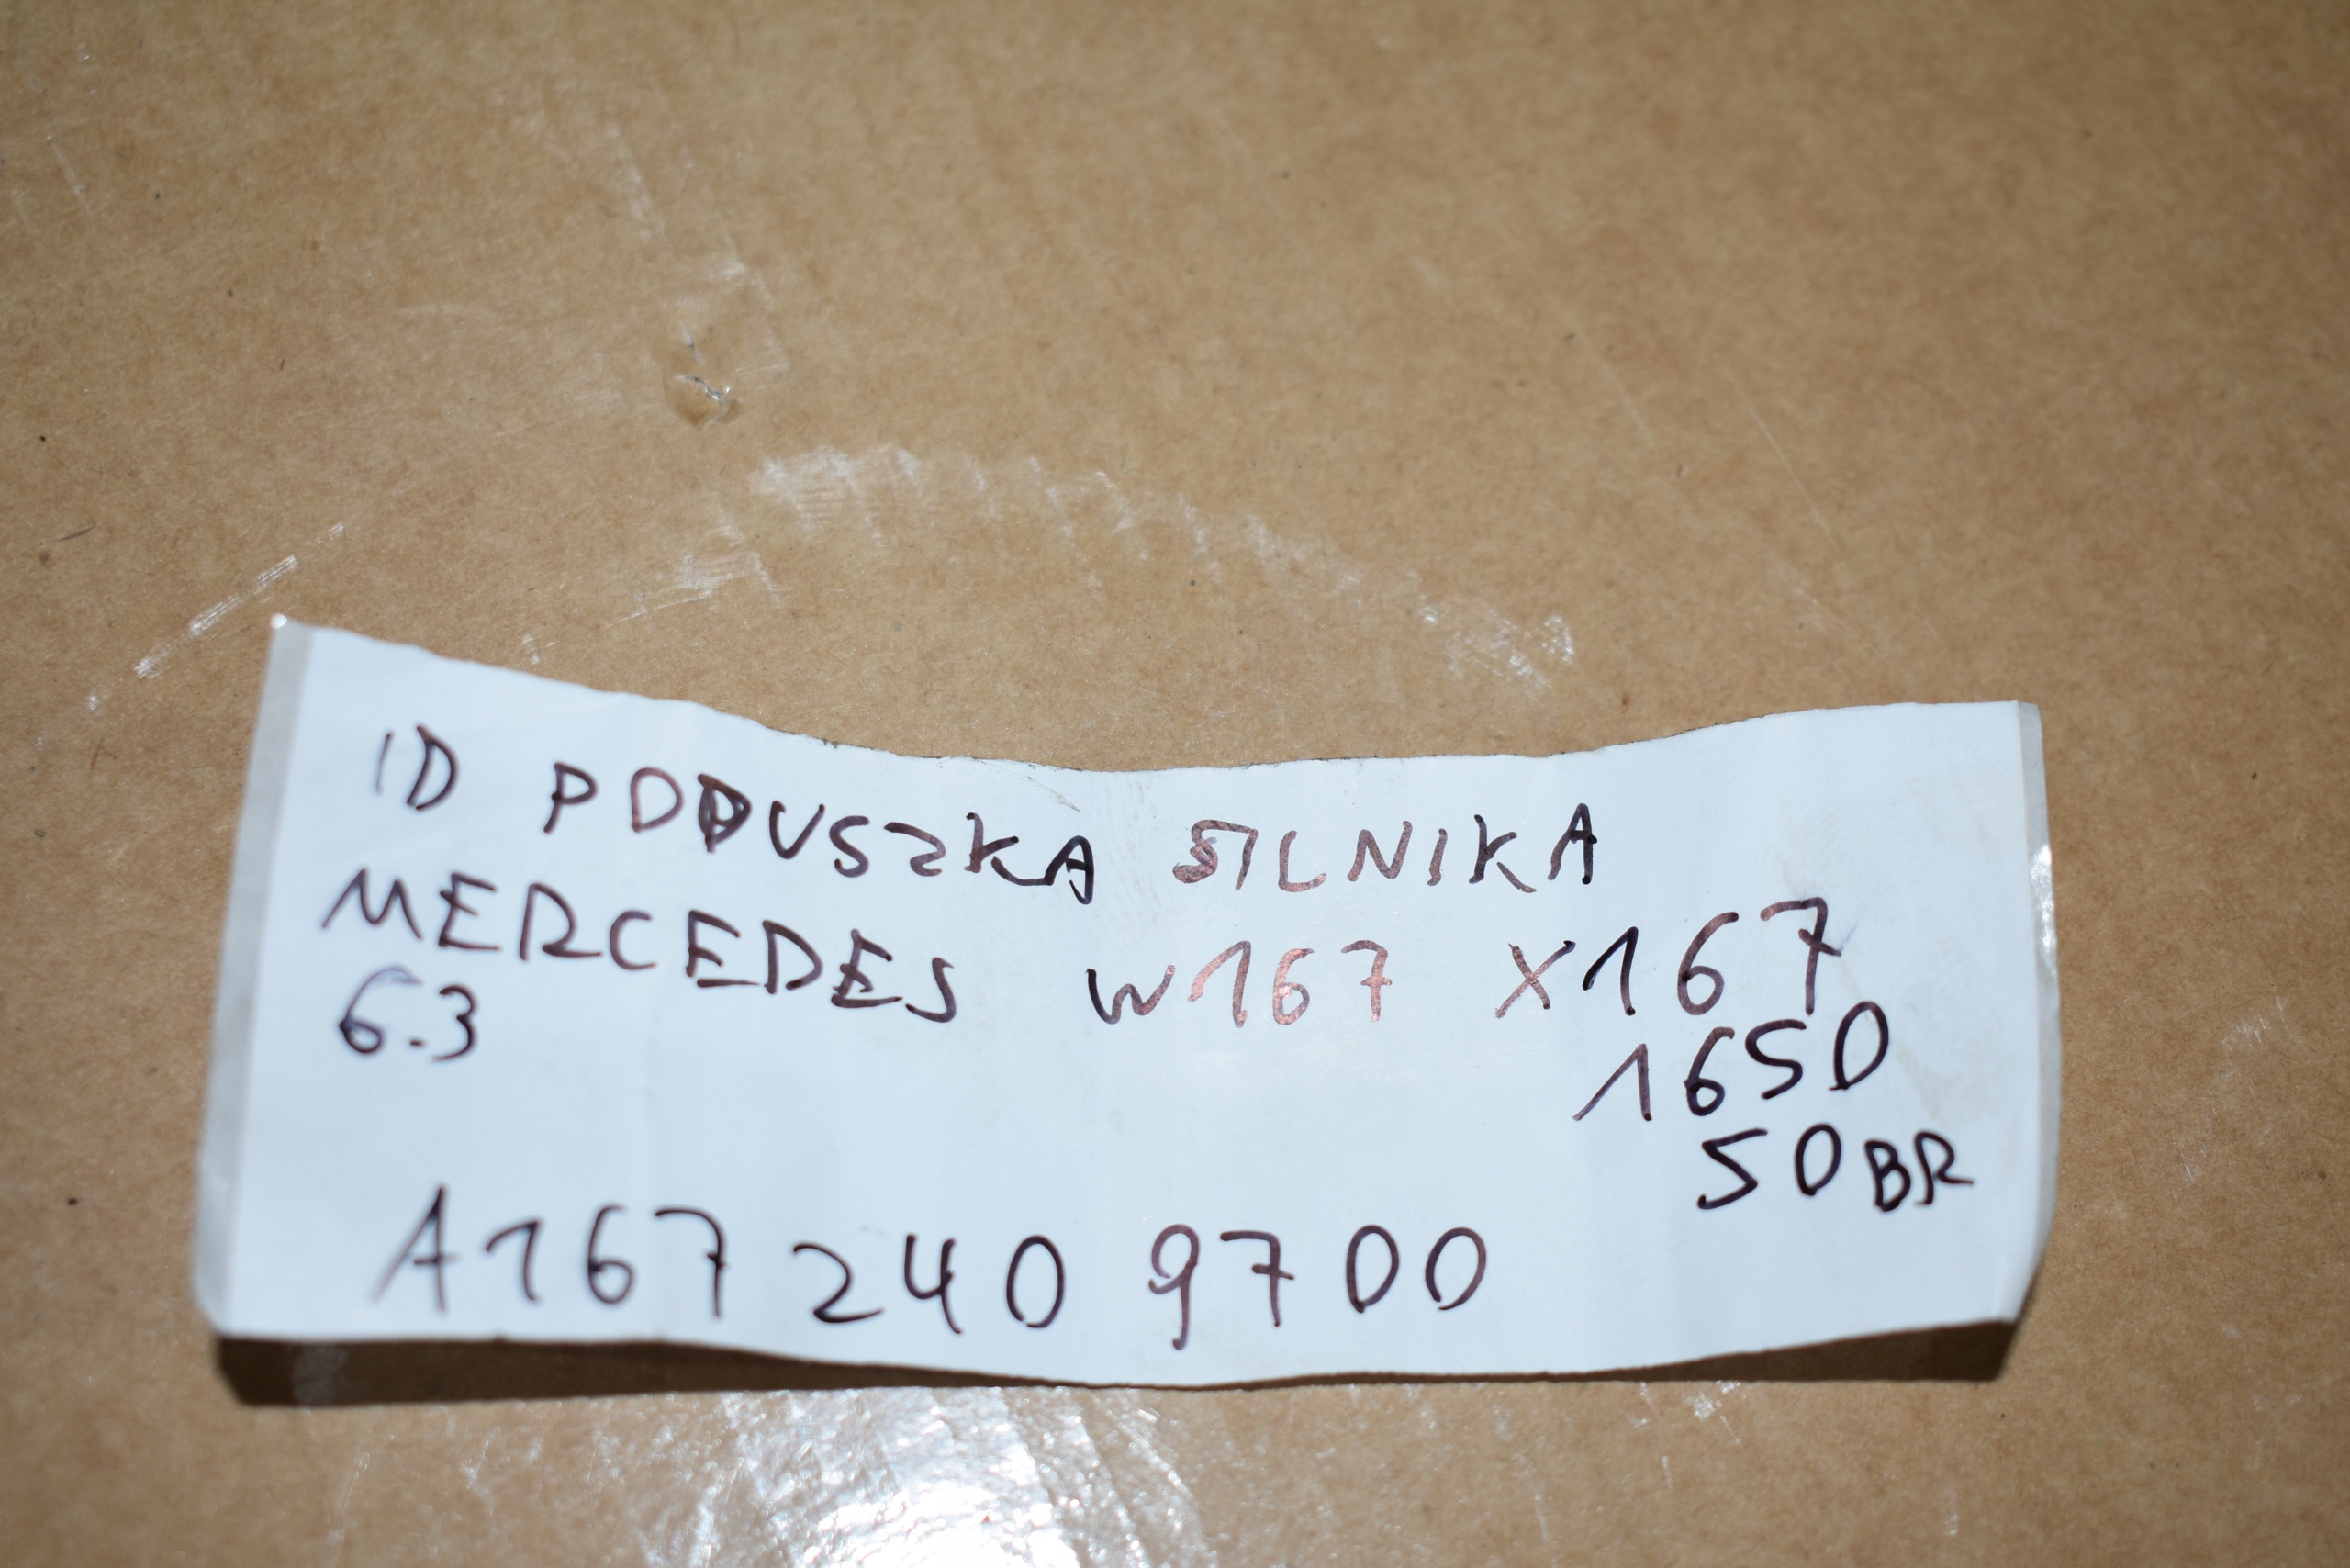 ID PODUSZKA SILNIKA
MERCEDES W167 X167
6.3
1650
50BR
A167 240 9700